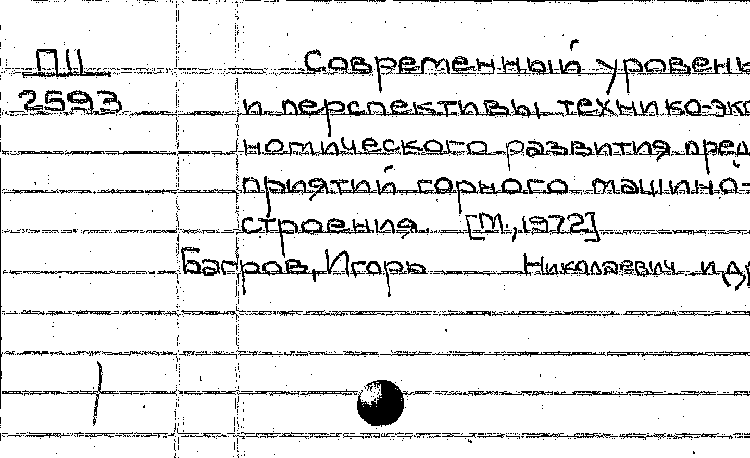 П11
2593
Современный уровень
и перспективы технико-эко
номического развития пред
приятий горного машино-
строения. [М., 1972]
Багров, Игорь Николаевич и др